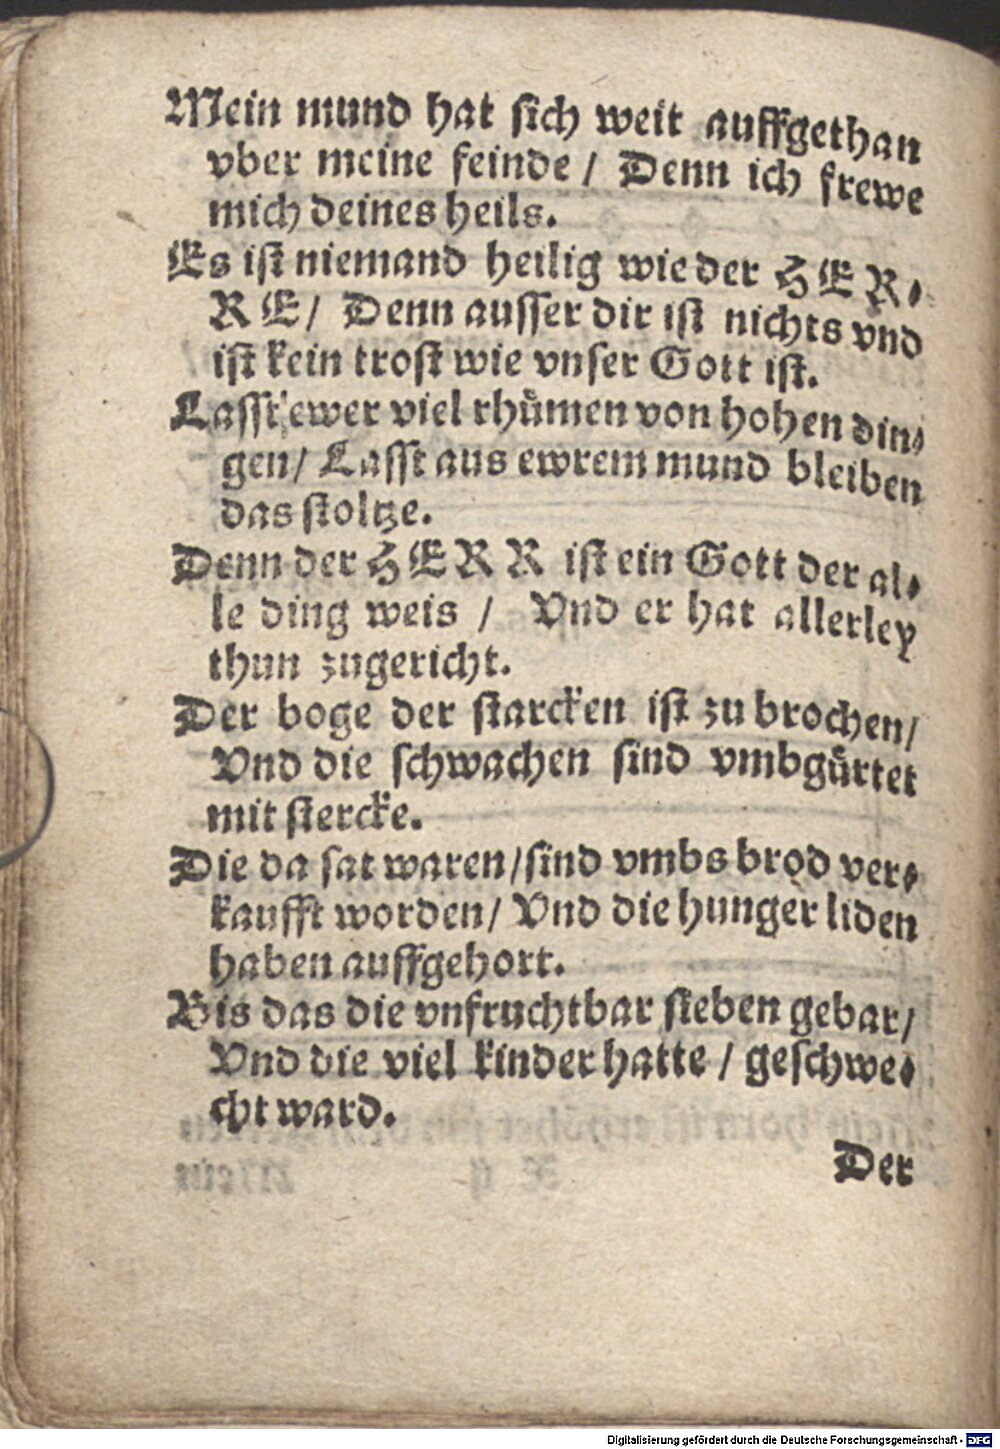 Mein mund hat sich weit auffgethan
vber meine feinde / Denn ich frewe
mich deines heils.
Es ist niemand heilig wie der HER⸗
RE / Denn ausser dir ist nichts vnd
ist kein trost wie vnser Gott ist.
Lasst ewer viel rhůmen von hohen din⸗
gen / Lasst aus ewrem mund bleiben
das stoltze.
Denn der HERR ist ein Gott der al⸗
le ding weis / Vnd er hat allerley
thun zugericht.
Der boge der starcken ist zu brochen /
Vnd die schwachen sind vmbgůrtet
mit stercke.
Die da sat waren / sind vmbs brod ver⸗
kaufft worden / Vnd die hunger liden
haben auffgehort.
Bis das die vnfruchtbar sieben gebar /
Vnd die viel kinder hatte / geschwe⸗
cht ward.
Der
Digitalisierung gefördert durch die Deutsche Forschungsgemeinschaft - DFG